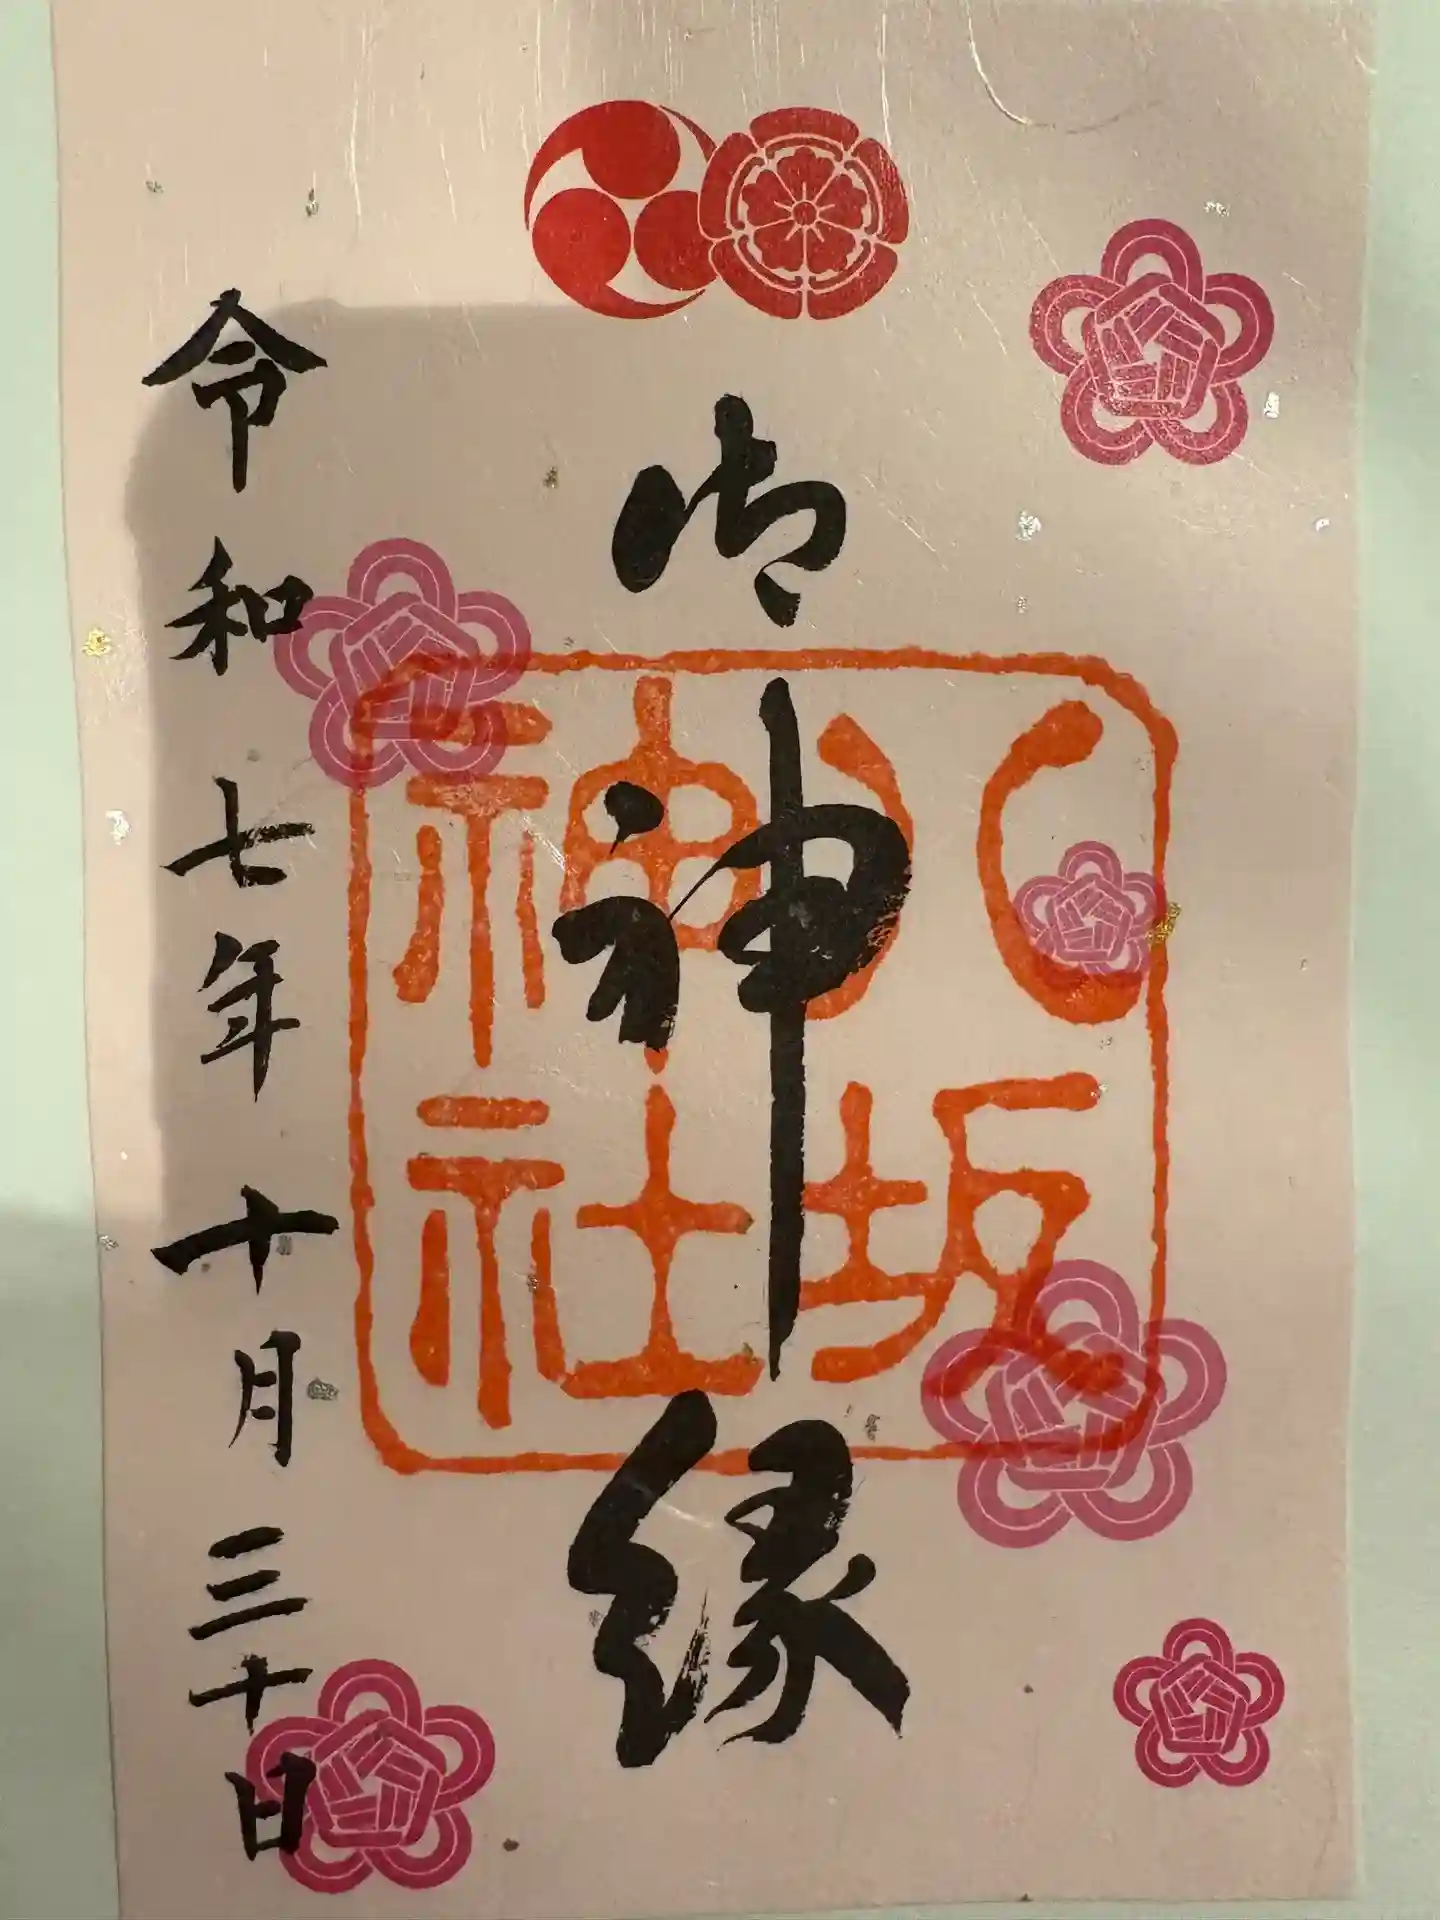 御神縁
八坂
神社
令和七年十月三十日